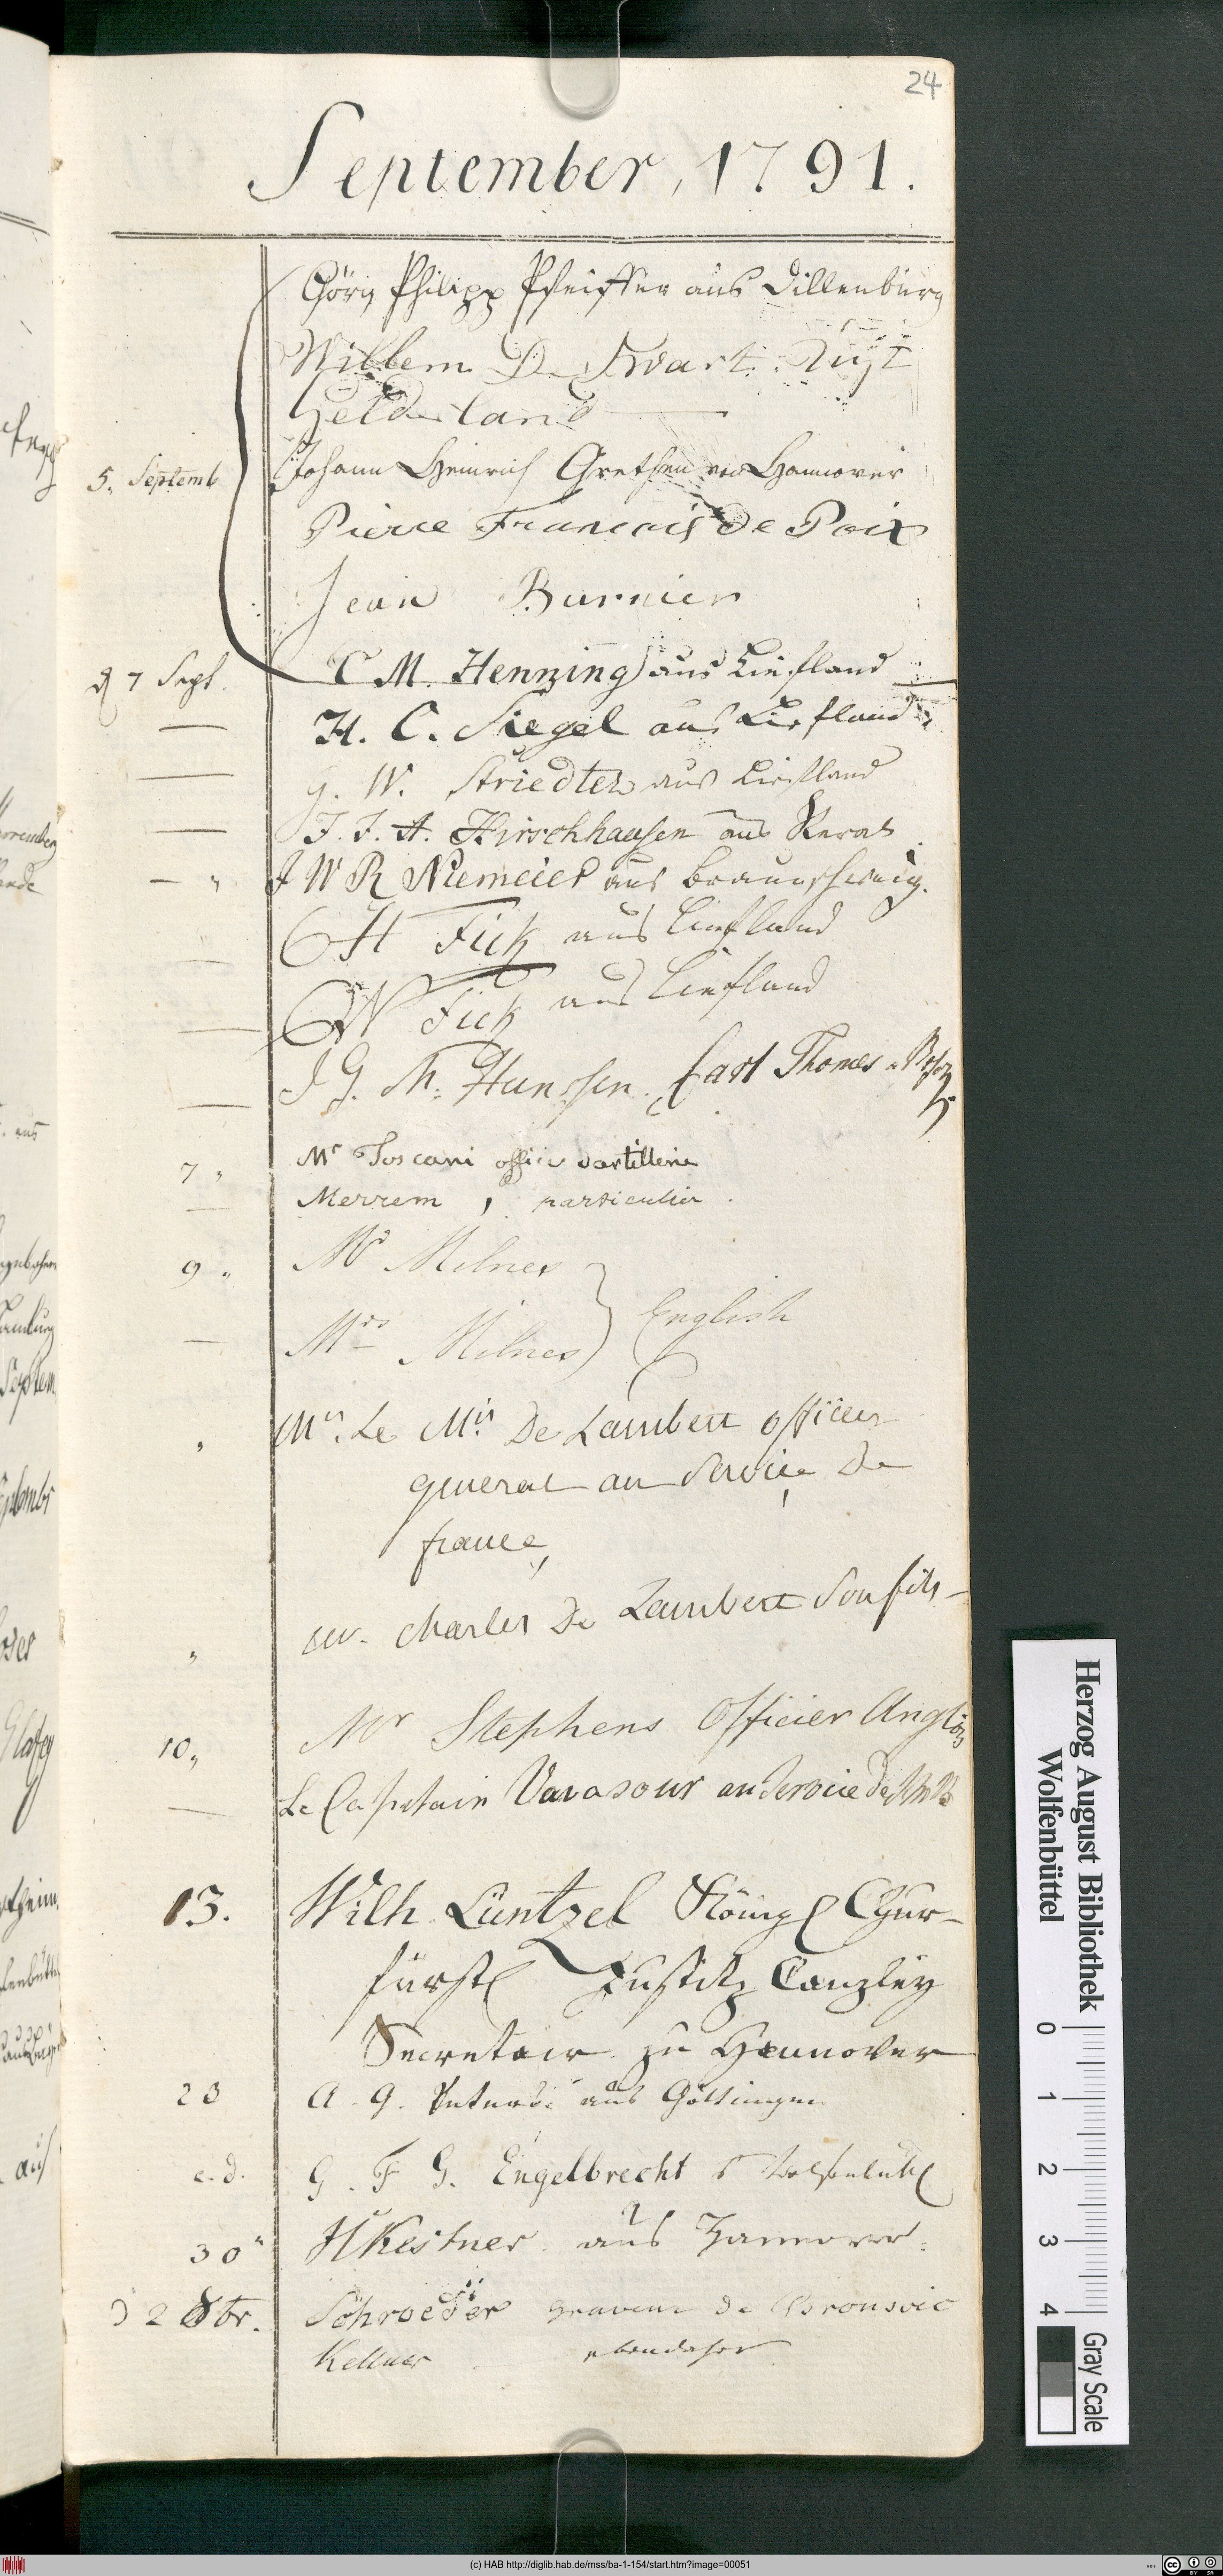 24
September, 1791.
Görg Philipp Pfeiffer aus Dillenburg
Willem D. Swart. Uijt
Gelderland
5. Septemb Johann Heinrich Grethen von Hannover
Pierre Francois de Poix
Jean Burnier
7 Sept. C M. Henning aus Liefland
H. C. Siegel aus Liefland
G. W. Striedter aus Liefland
J. J. A. Hirschhausen aus Reval
J W R Niemeier aus Braunschweig.
C H Fick aus Liefland
C W Fick aus Liefland
J G. M. Hanssen. Carl Thomas
7 " Mr Toscani offic d'artillerie
Merrem, particulier.
9 " Mr Milnes
Mrs Milnes } English
" Mr. Le Mis De Lambert officier
general au Service de
france,
" Charles De Lambert Son fils
10 " Mr Stephens Officier Anglois
Le Capitain Vavasour au Service de
13. Wilh. Lüntzel Königl Chur-
fürstl Justitz Canzley
Secretair zu Hannover
23 A. G. aus Göttingen
e. d. G. F. G. Engelbrecht
30 " H Kestner aus Hannover.
2 8br. Schroeder graveur de Bronsvic
Kellner ebendaher
Herzog August Bibliothek
Wolfenbüttel
0 1 2 3 4
Gray Scale
(c) HAB http://diglib.hab.de/mss/ba-1-154/start.htm?image=00051